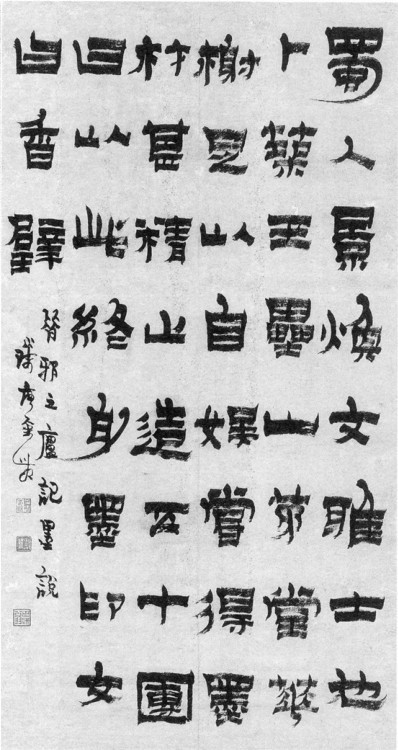 蜀人景煥文雅士也
卜築玉壘山茅堂花
榭足以自娛嘗得墨
材甚精止造五十團
曰以此終身墨印文
曰香璧
昔邪之廬記墨說
錢唐金農